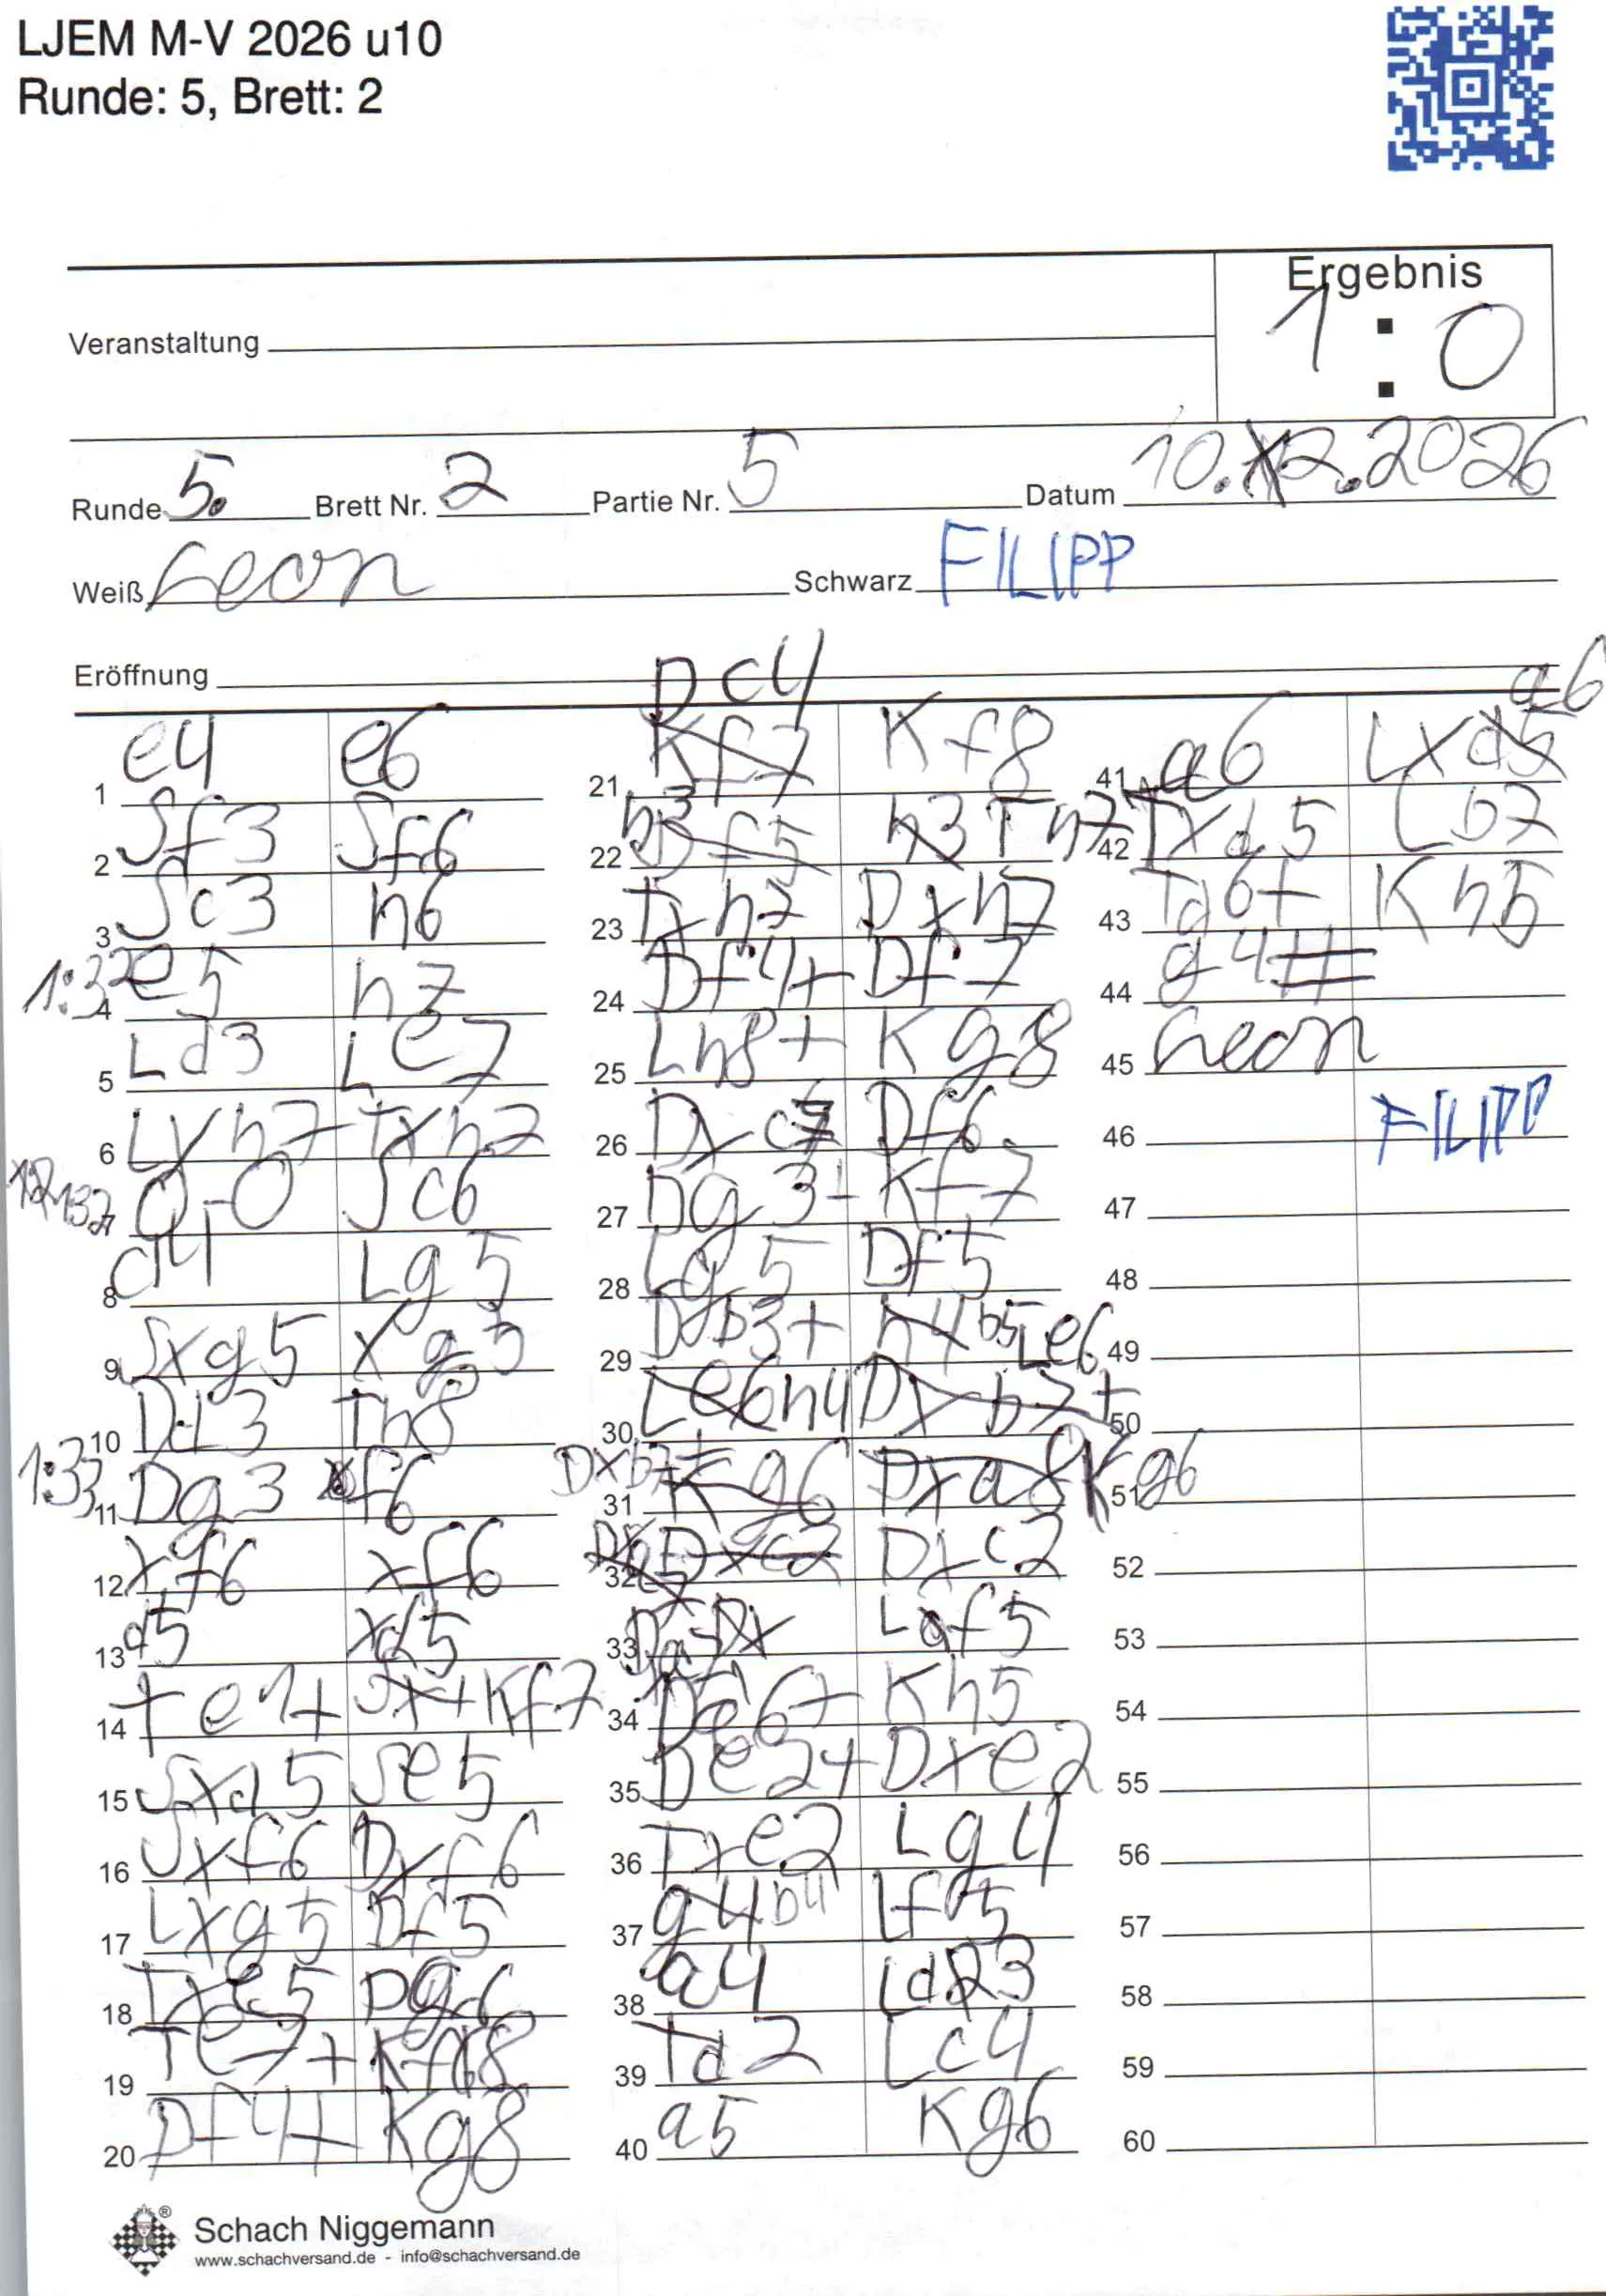 LJEM M-V 2026 u10
Runde: 5, Brett: 2
Ergebnis
1 : 0
Veranstaltung
Runde 5. Brett Nr. 2 Partie Nr. 5 Datum 10.2.2026
Weiß Leon Schwarz FILIPP
Eröffnung
1 e4 e6
2 Sf3 Sf6
3 Sc3 h6
1:32
4 e5 h7
5 Ld3 Le7
6 Lxh7 Txh7
132
7 0-0 Sc6
8 d4 Lg5
9 Sxg5 xg5
10 Dd3 Th8
1:33
11 Dg3 f6
12 xf6 xf6
13 d5 xd5
14 Te1+ Kf7
15 Sxd5 Se5
16 Sxf6 Dxf6
17 Lxg5 Df5
18 Txe5 Dg6
19 Te7+ Kf8
20 Df4+ Kg8
21 Dc4 Kf8
22 h3 Th7
23 Txh7 Dxh7
24 Df4+ Df7
25 Lh8+ Kg8
26 Dxc7 Df6
27 Dg3+ Kf7
28 Lg5 Df5
29 Db3+ Le6
30 h4
31 Dxb7+ Kg6
32 Dxc2
33 Lf5
34 De6+ Kh5
35 De2+ Dxe2
36 Txe2 Lg4
37 b4 Lf5
38 a4 Ld3
39 Td2 Lc4
40 a5 Kg6
41 a6 a6
42 Txd5 Lb7
43 Td6+ Kh5
44 g4#
45 Leon
46 FILIPP
47
48
49
50
51
52
53
54
55
56
57
58
59
60
Schach Niggemann
www.schachversand.de - info@schachversand.de